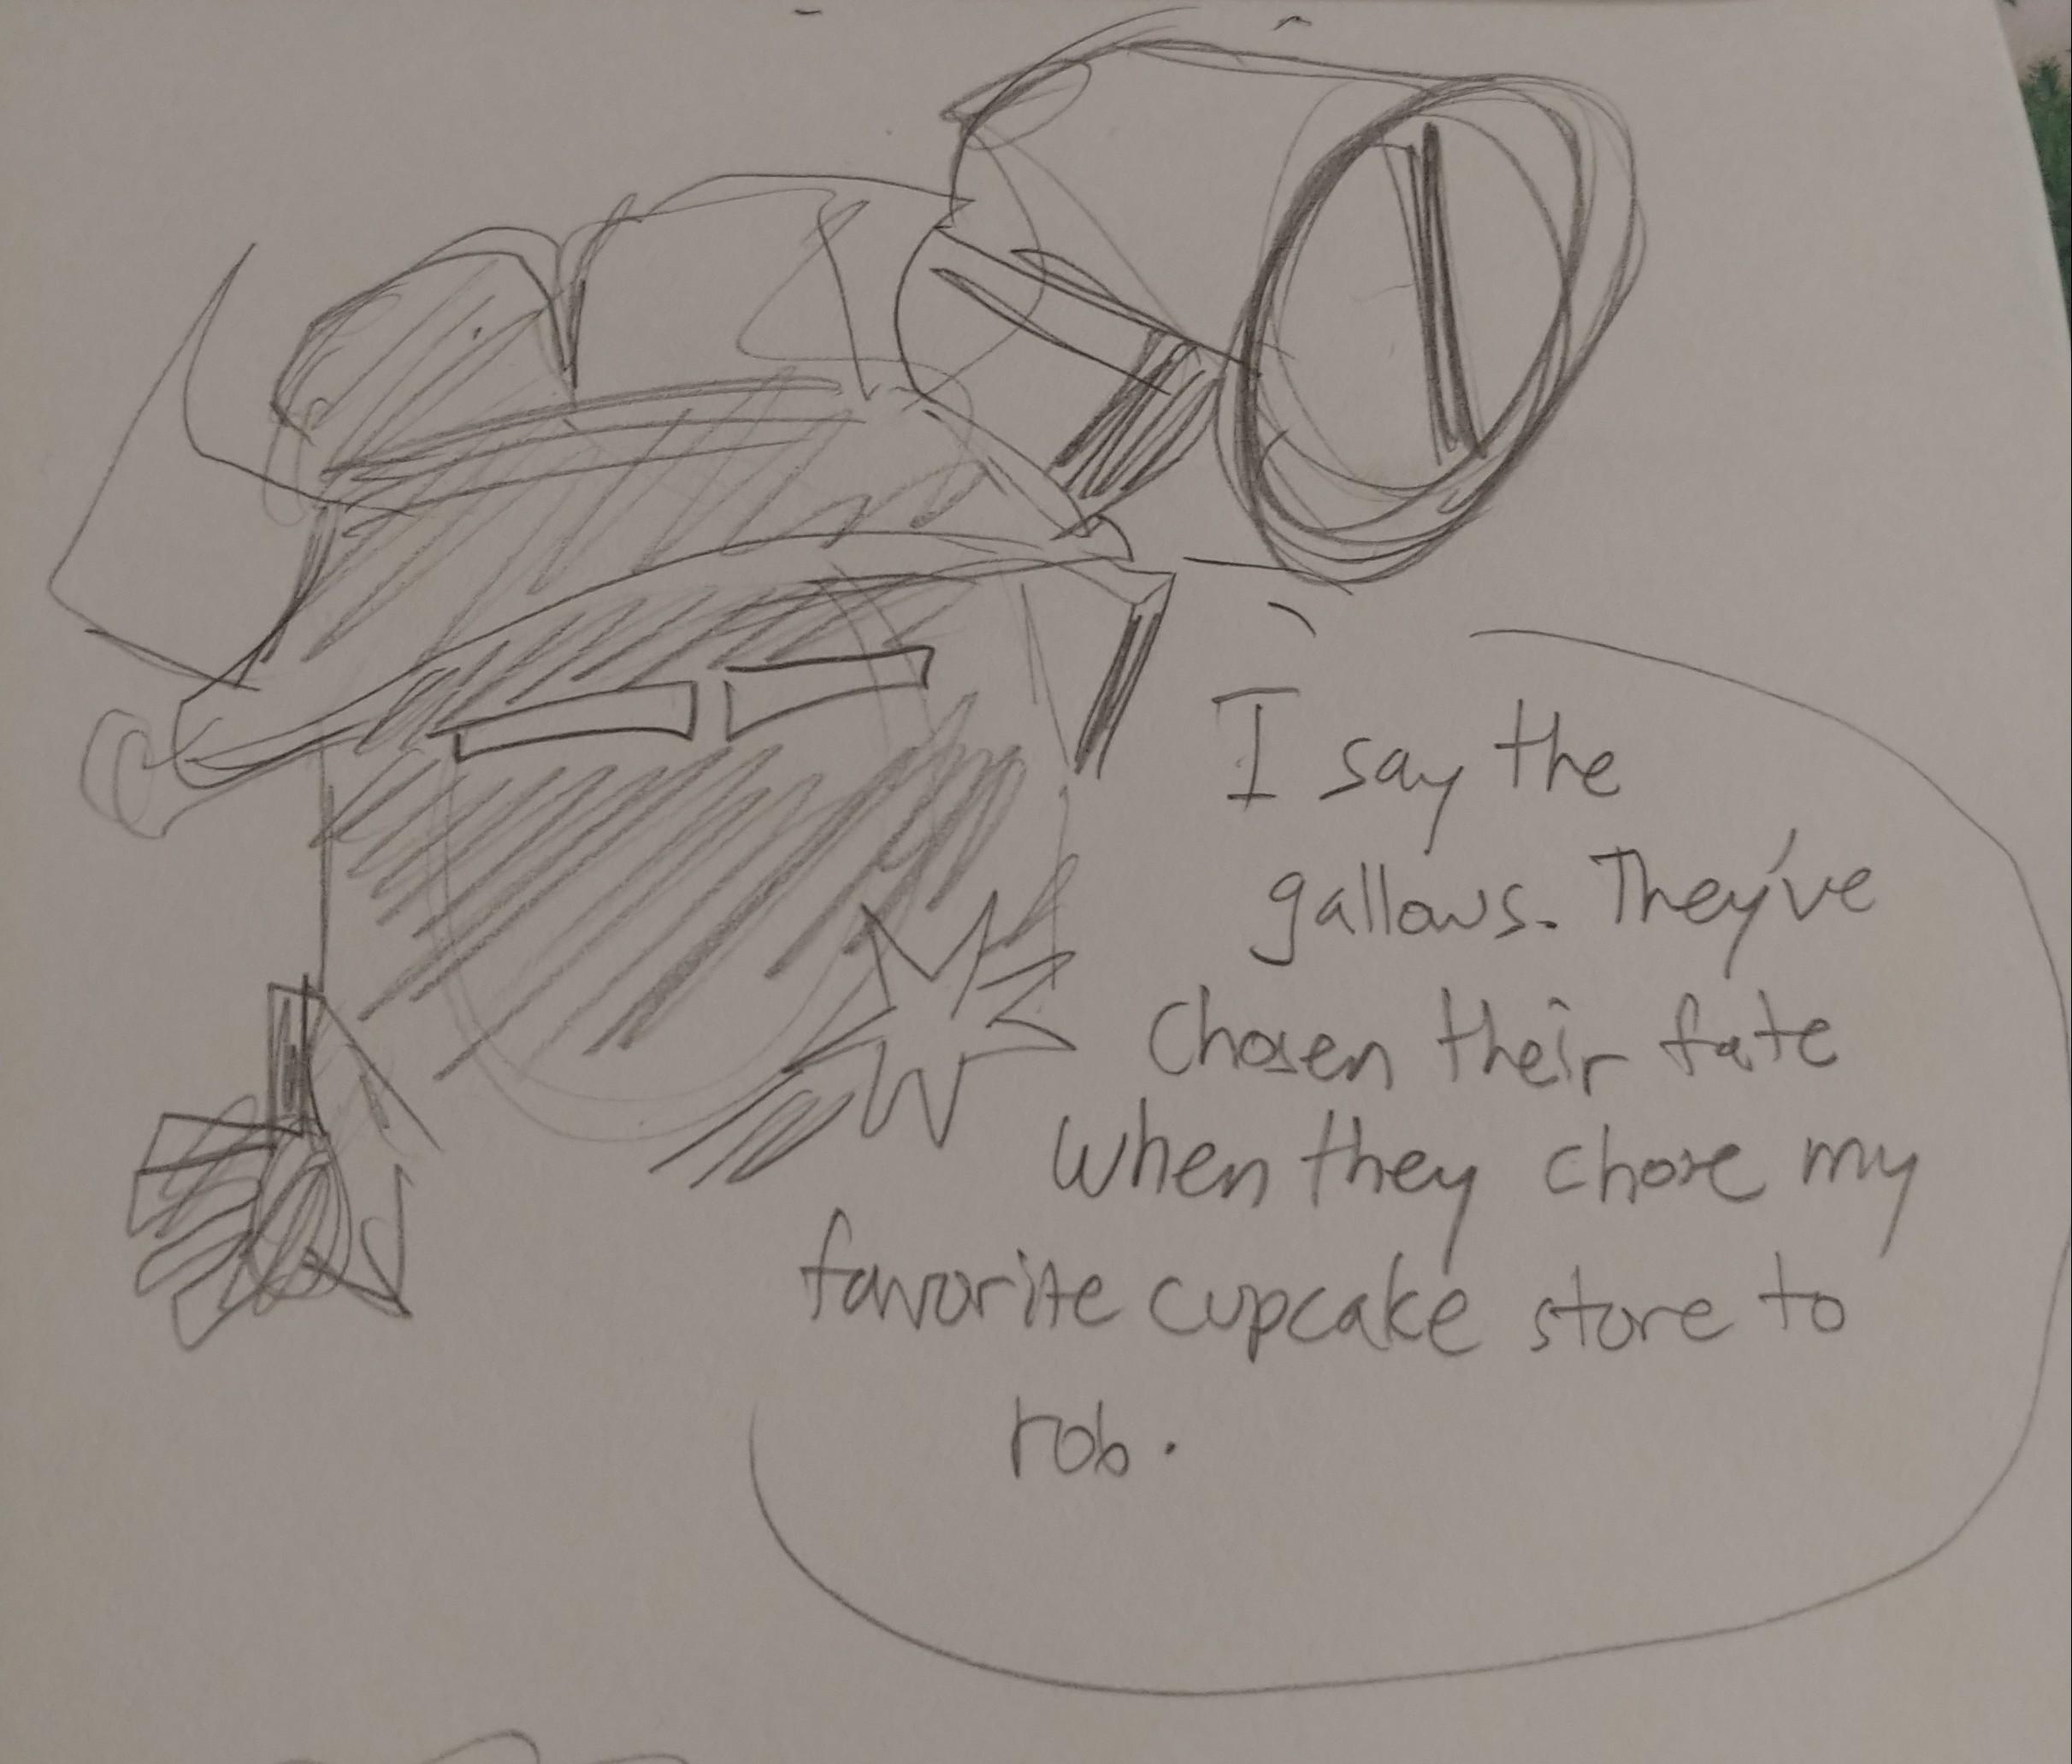 I say the
gallows. They've
chosen their fate
when they chose my
favorite cupcake store to
rob.